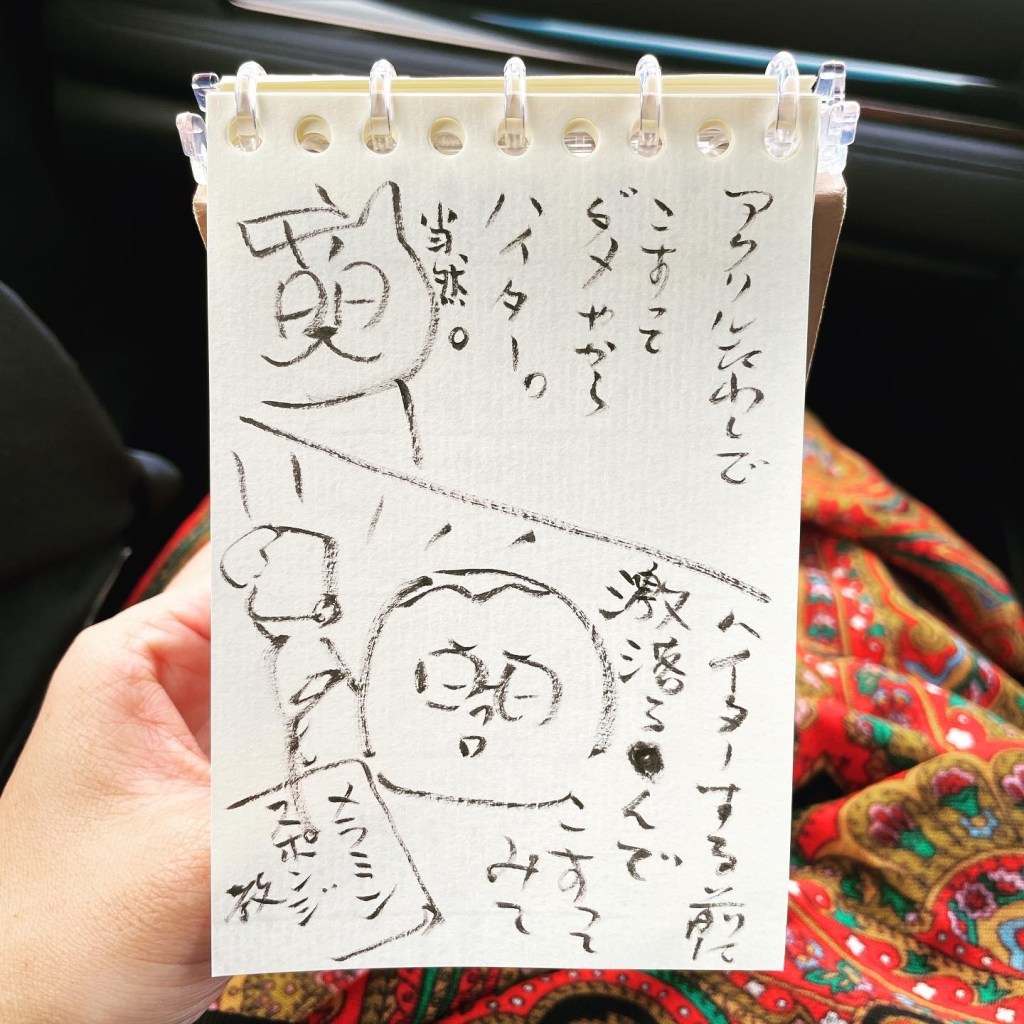 アクリルたわしで
こすって
ダメやから
ハイター。
当然。
ハイターする前に
激落ち●くんで
こすって
みて
メラミン
スポンジ
教